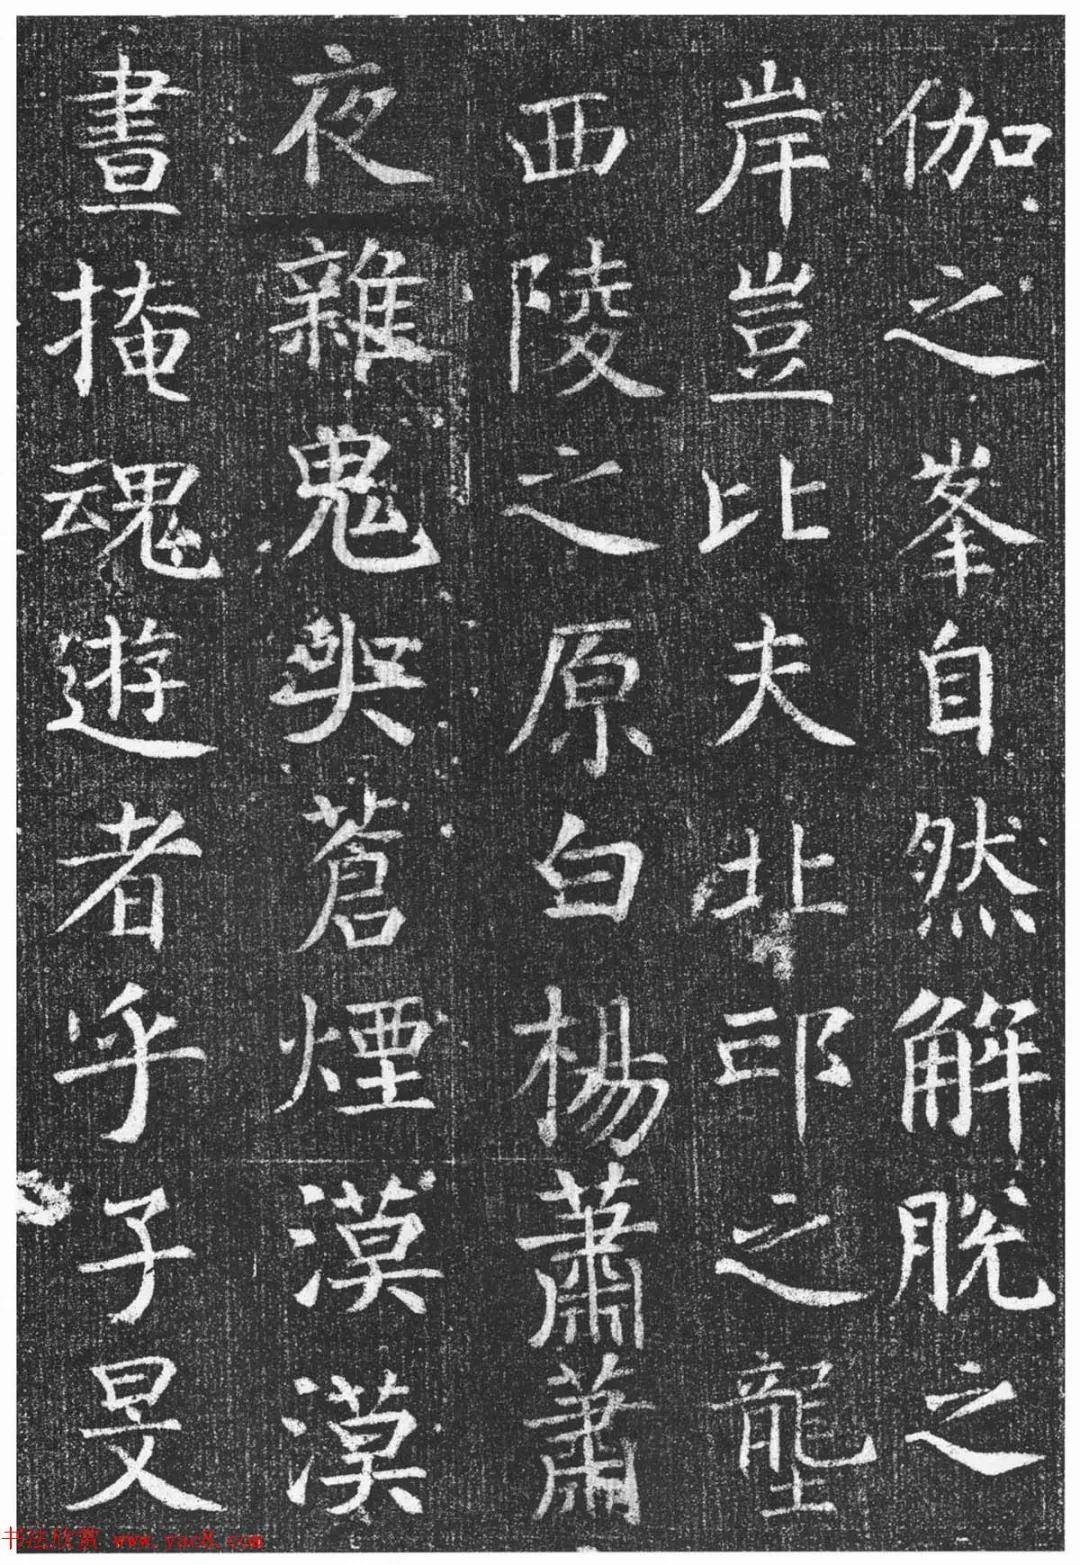 伽之峯自然解脫之
岸豈比夫北邙之壟
西陵之原白楊蕭蕭
夜雜鬼哭蒼煙漠漠
晝掩魂遊者乎子旻
书法欣赏 www.yac8.com